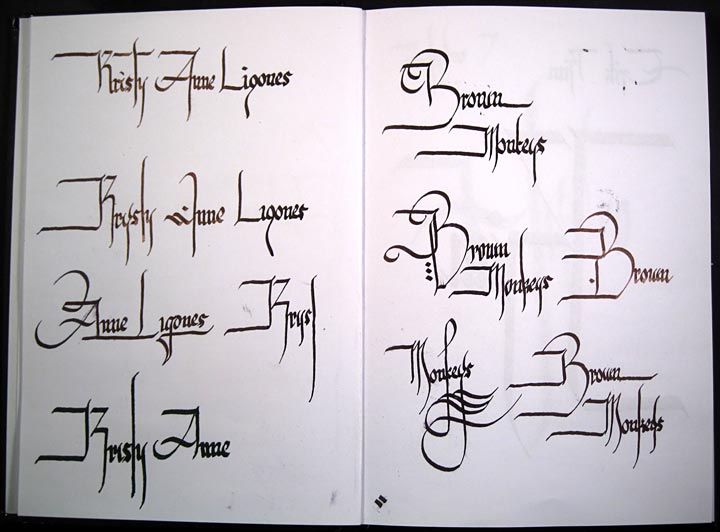 Kristy Anne Ligones
Krysty Anne Ligones
Anne Ligones
Kryst
Kristy Anne
Brown
Monkeys
Brown
Monkeys
Brown
Monkeys
Brown
Monkeys